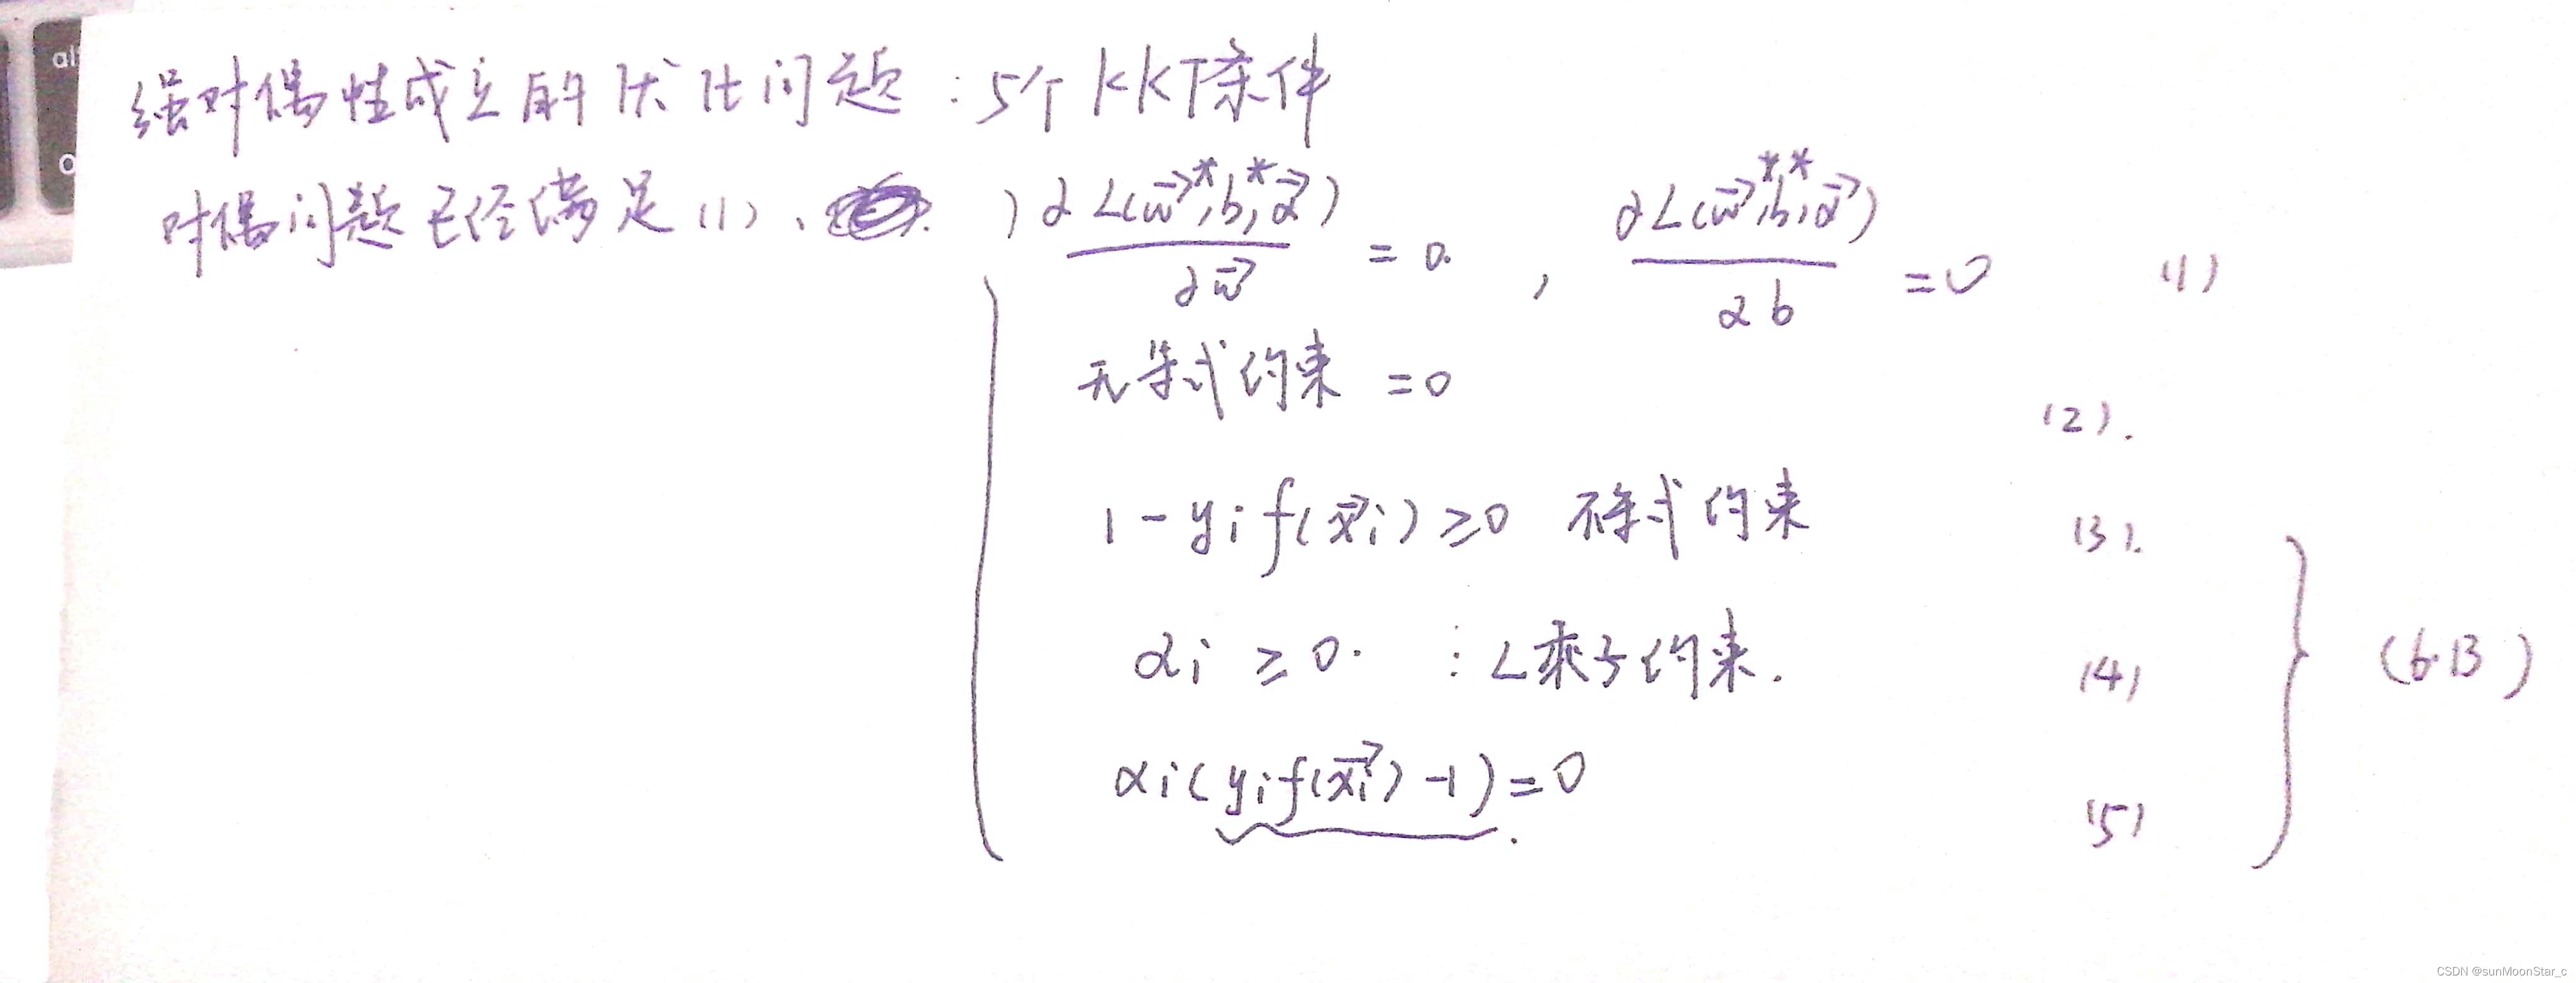 强对偶性成立的优化问题：5个KKT条件
对偶问题已经满足(1)、
∂L(w⃗*,b*,α⃗)/∂w⃗ = 0, ∂L(w⃗*,b*,α⃗)/∂b = 0 (1)
无等式约束 = 0 (2).
1 - yi f(x⃗i) ≥ 0 不等式约束 (3).
αi ≥ 0. : L乘子约束. (4)
αi(yi f(x⃗i) - 1) = 0 (5)
(6.13)
al
CSDN @sunMoonStar_c